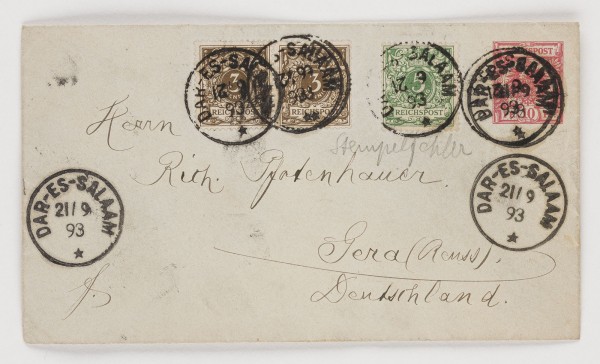 3 3 5 10
REICHSPOST REICHSPOST REICHSPOST
DAR-ES-SALAAM 21/9 93
DAR-ES-SALAAM 93
DAR-ES-SALAAM 21/9 93
DAR-ES-SALAAM 21/9 93
Stempelfehler
Herrn
Rich. Pfotenhauer.
DAR-ES-SALAAM 21/9 93
DAR-ES-SALAAM 21/9 93
Gera (Reuss).
Deutschland.